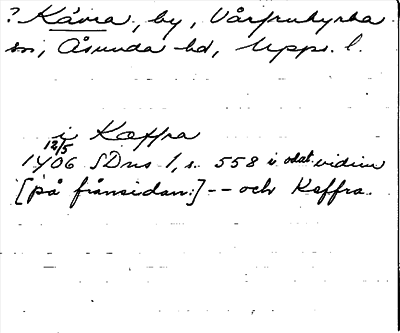 ? Kävra, by, Vårfrukyrka
sn, Åsunda hd, Upps. l.
i Kæffra
12/5
1406 SDns 1, s. 558 i odat. vidim
[på frånsidan:] -- och Keffra.